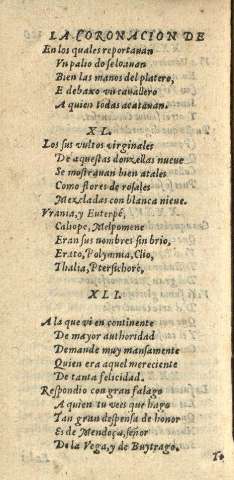 LA CORONACION DE
En los quales reportauan
Vn palio do seloauan
Bien las manos del platero,
E debaxo vn cauallero
A quien todas acatauan.
XL.
Los sus vultos virginales
De aquestas donzellas nueue
Se mostrauan bien atales
Como flores de rosales
Mezcladas con blanca nieue.
Vrania, y Euterpé,
Caliope, Melpomene
Eran sus nombres sin brio,
Erato, Polymnia, Clio,
Thalia, Ptersichoré,
XLI.
A la que vi en continente
De mayor authoridad
Demande muy mansamente
Quien era aquel mereciente
De tanta felicidad.
Respondio con gran falago
A quien tu vees que hago
Tan gran despensa de honor
Es de Mendoça, señor
De la Vega, y de Buytrago.
To